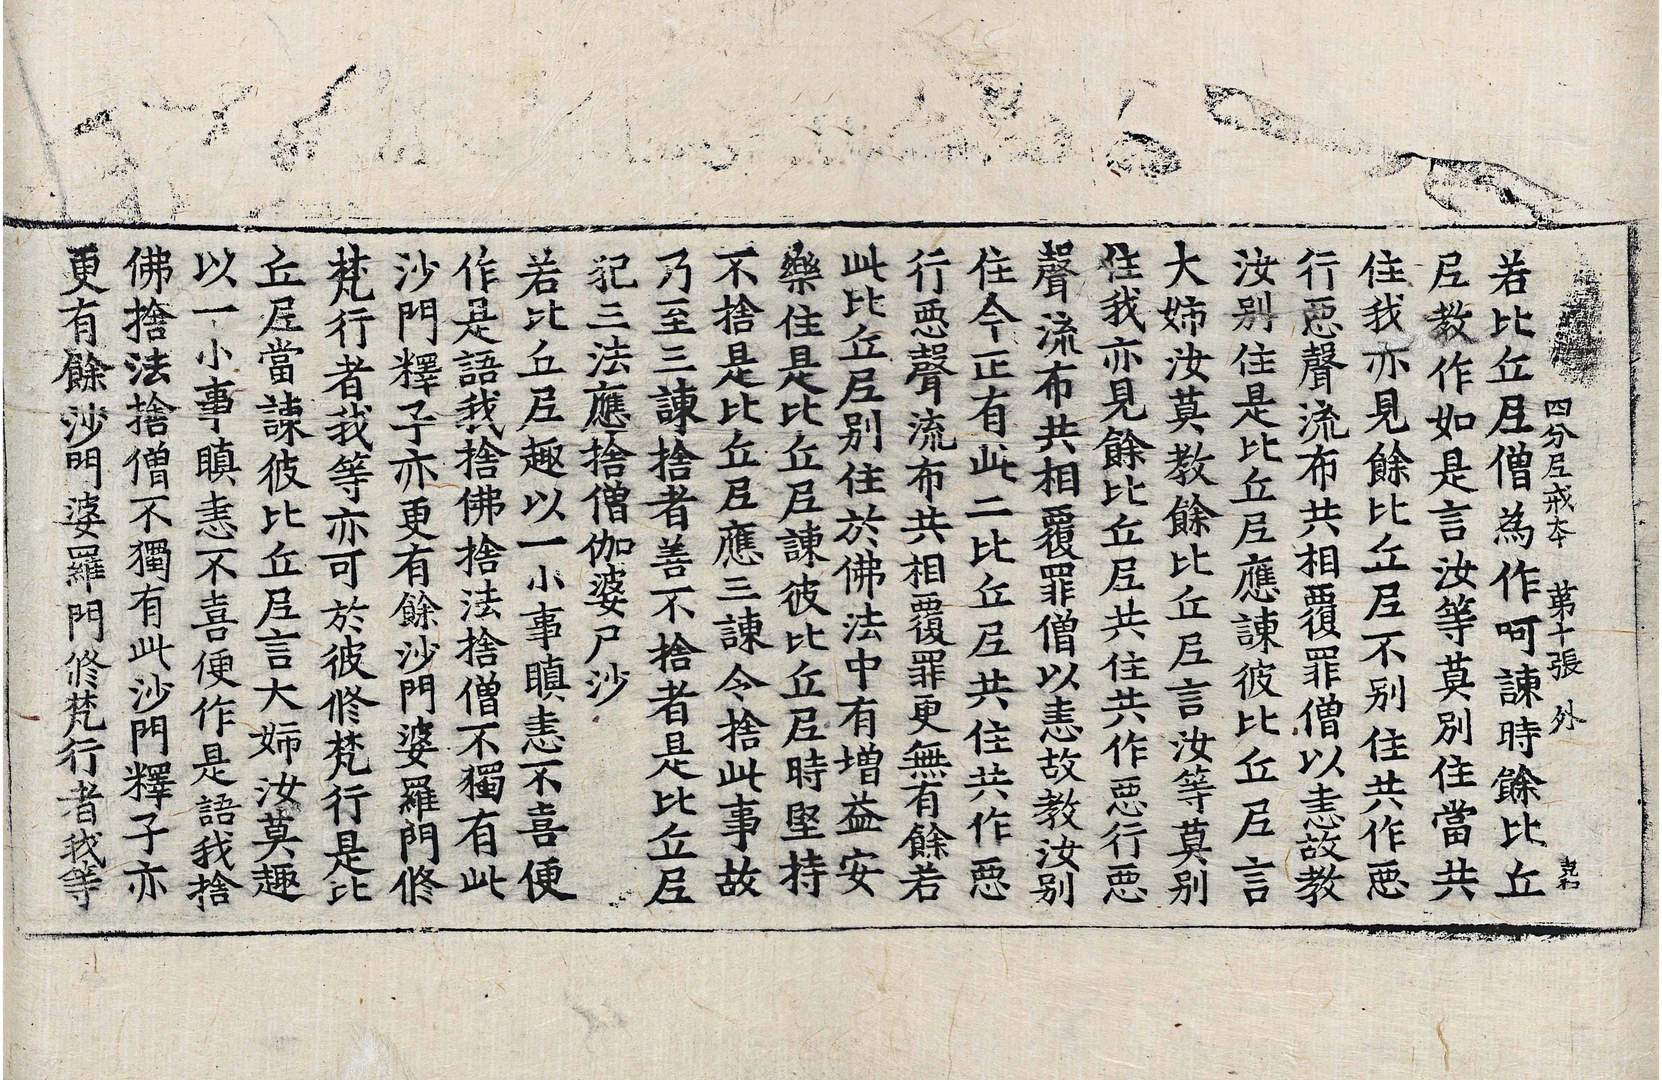 四分尼戒本 第十張 外
若比丘尼僧為作呵諫時餘比丘
尼教作如是言汝等莫別住當共
住我亦見餘比丘尼不別住共作惡
行惡聲流布共相覆罪僧以恚故教
汝別住是比丘尼應諫彼比丘尼言
大姉汝莫教餘比丘尼言汝等莫別
住我亦見餘比丘尼共住共作惡行惡
聲流布共相覆罪僧以恚故教汝別
住今正有此二比丘尼共住共作惡
行惡聲流布共相覆罪更無有餘若
此比丘尼別住於佛法中有增益安
樂住是比丘尼諫彼比丘尼時堅持
不捨是比丘尼應三諫令捨此事故
乃至三諫捨者善不捨者是比丘尼
犯三法應捨僧伽婆尸沙
若比丘尼趣以一小事瞋恚不喜便
作是語我捨佛捨法捨僧不獨有此
沙門釋子亦更有餘沙門婆羅門修
梵行者我等亦可於彼修梵行是比
丘尼當諫彼比丘尼言大姉汝莫趣
以一小事瞋恚不喜便作是語我捨
佛捨法捨僧不獨有此沙門釋子亦
更有餘沙門婆羅門修梵行者我等